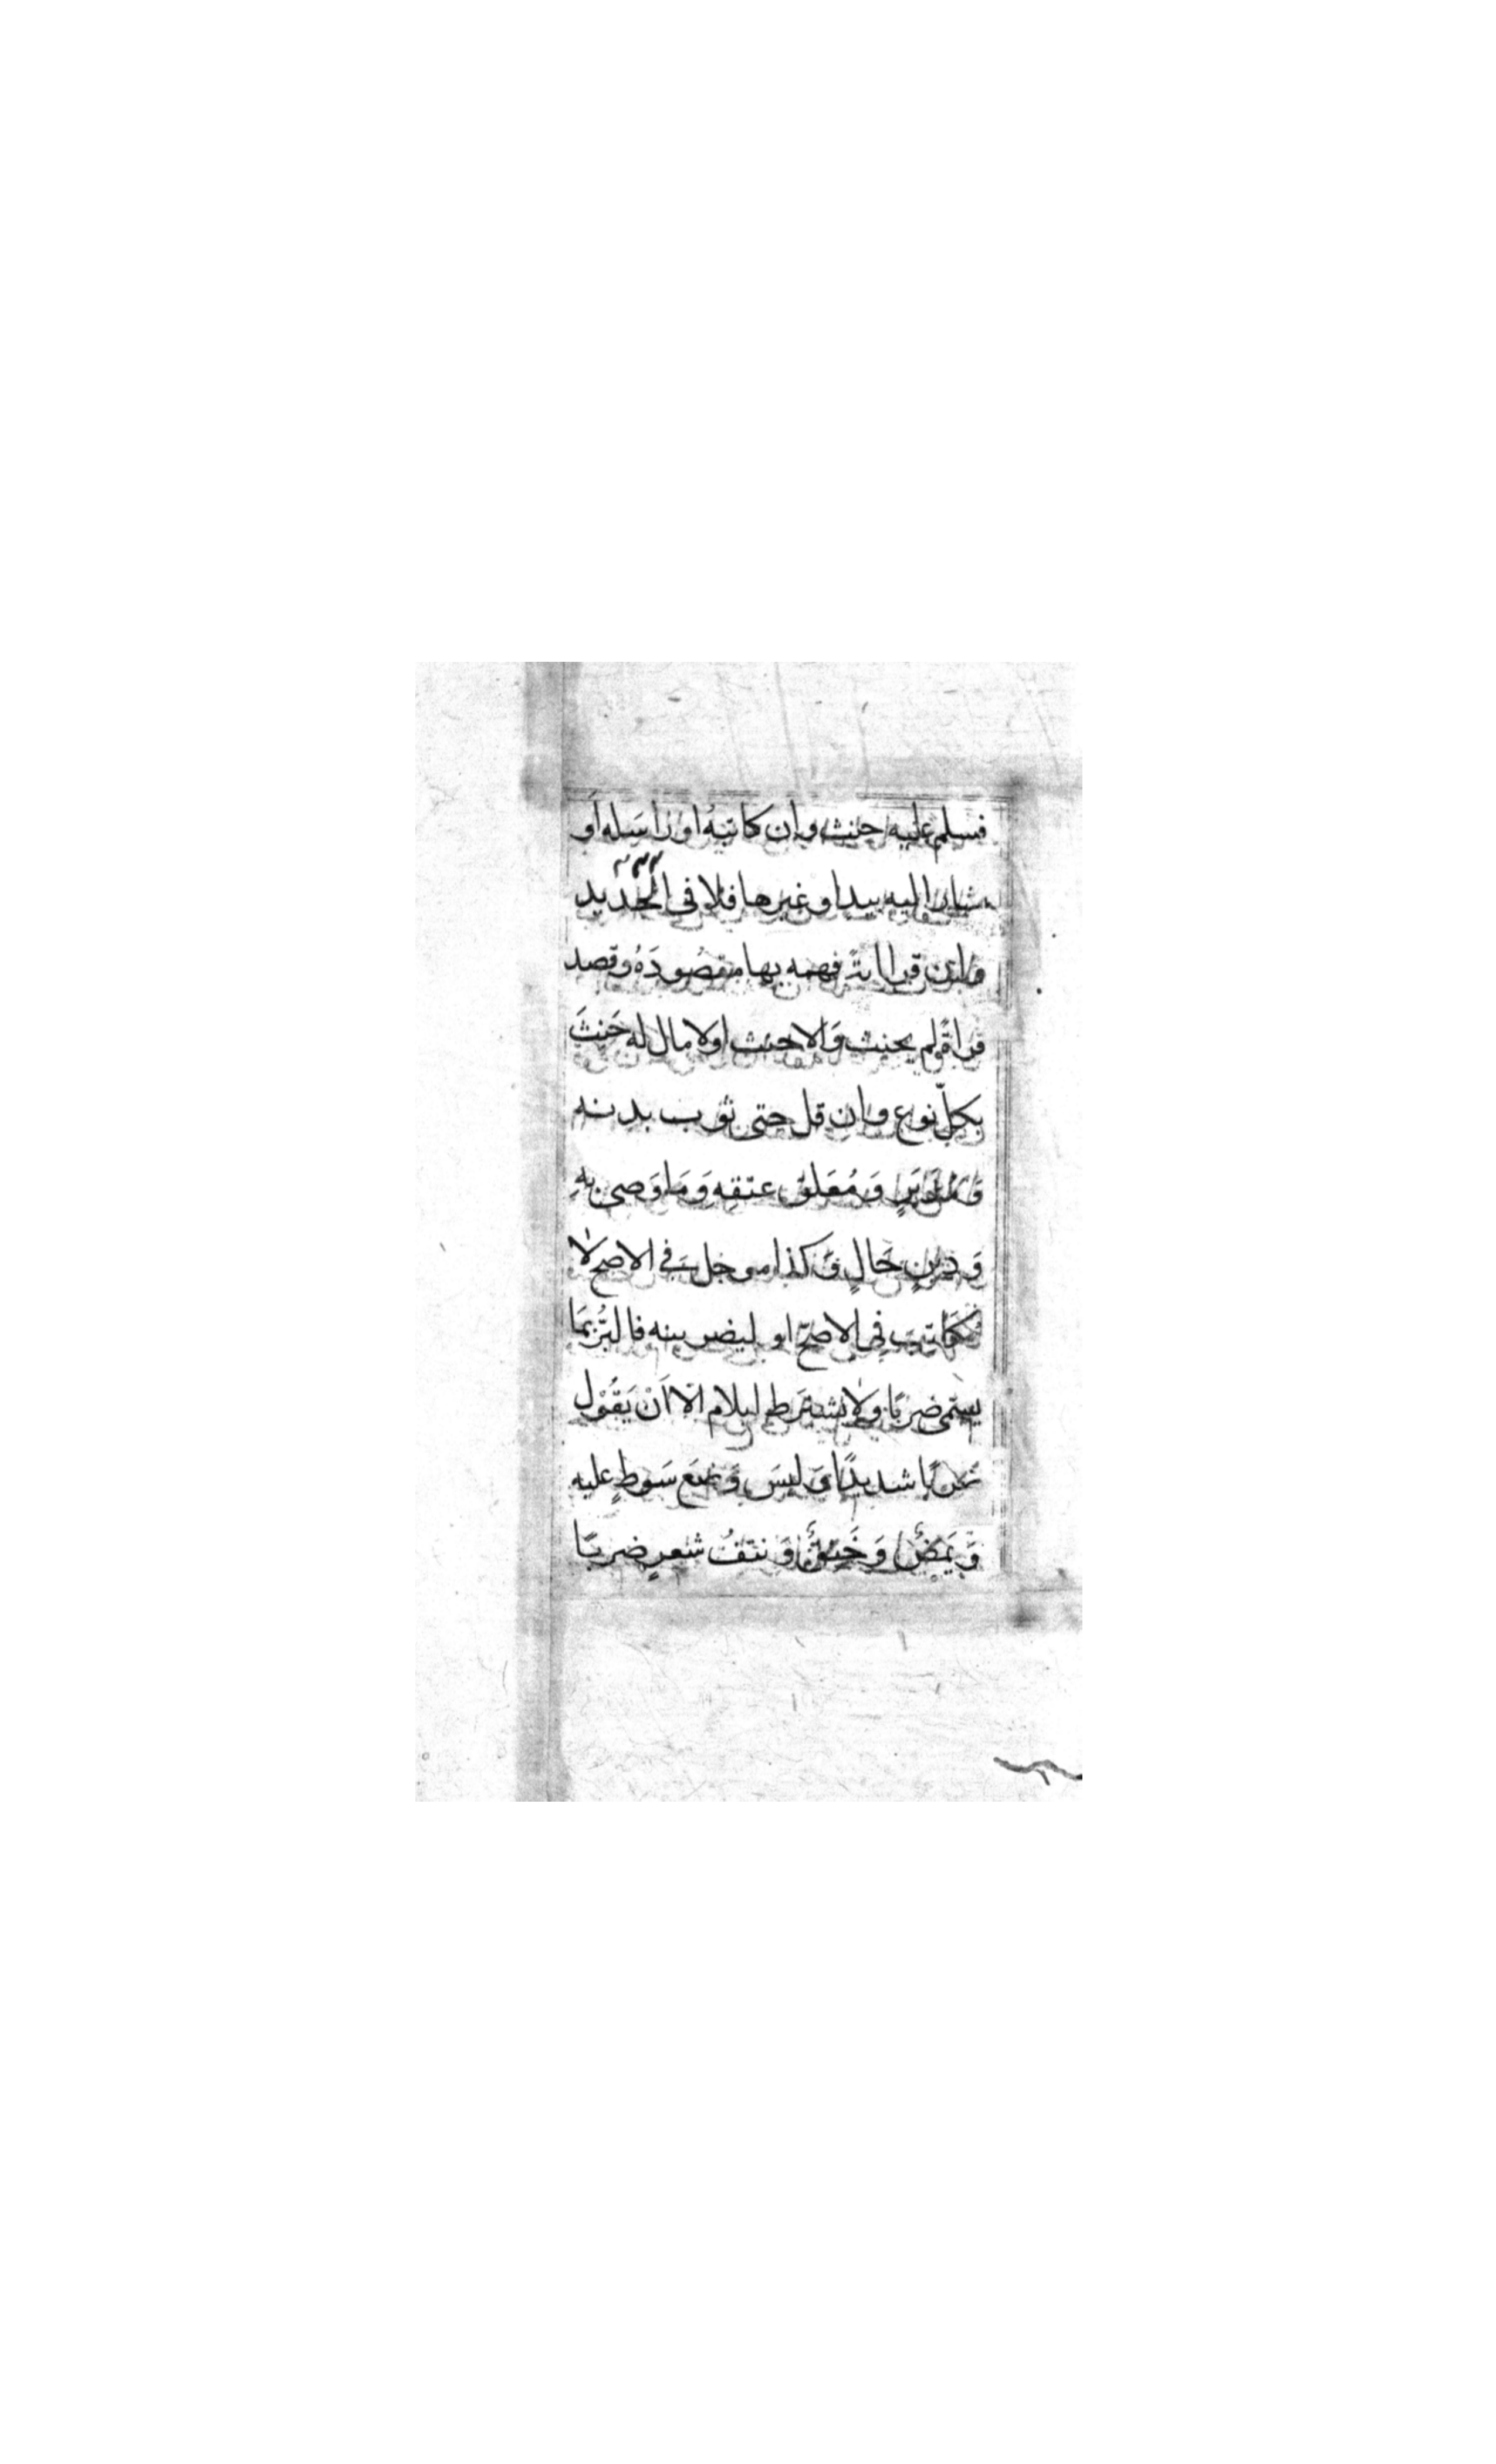 فسلم عليه حنث وان كاتبهُ او راسَله اَو
شار اليه بيد او غيرها فلا في الجَديد
وان قرا ايةً فهمه بها مقصُودَهُ وقصد
قراةً لم يحنث وَالا حنث اولا مال له حَنثَ
بكلّ نوع وان قل حتى ثوب بدنه
وَمُدَبَرٍ وَمُعَلق عتقه وَمَا وَصى بهِ
وَ دينٍ حَالٍ وَكذا موجل في الاصح لا
مكَاتب في الاصحّ او ليضربنه فالبرُّ بمَا
يسَمى ضربًا ولا يشترَط ايلام الّا اَنْ يَقُوْل
ضربًا شديدًا وَ ليسَ وَضع سَوطٍ عليه
وَ عَضٌّ وَ خَنِقٌ وَ نتفُ شعرٍ ضربًا